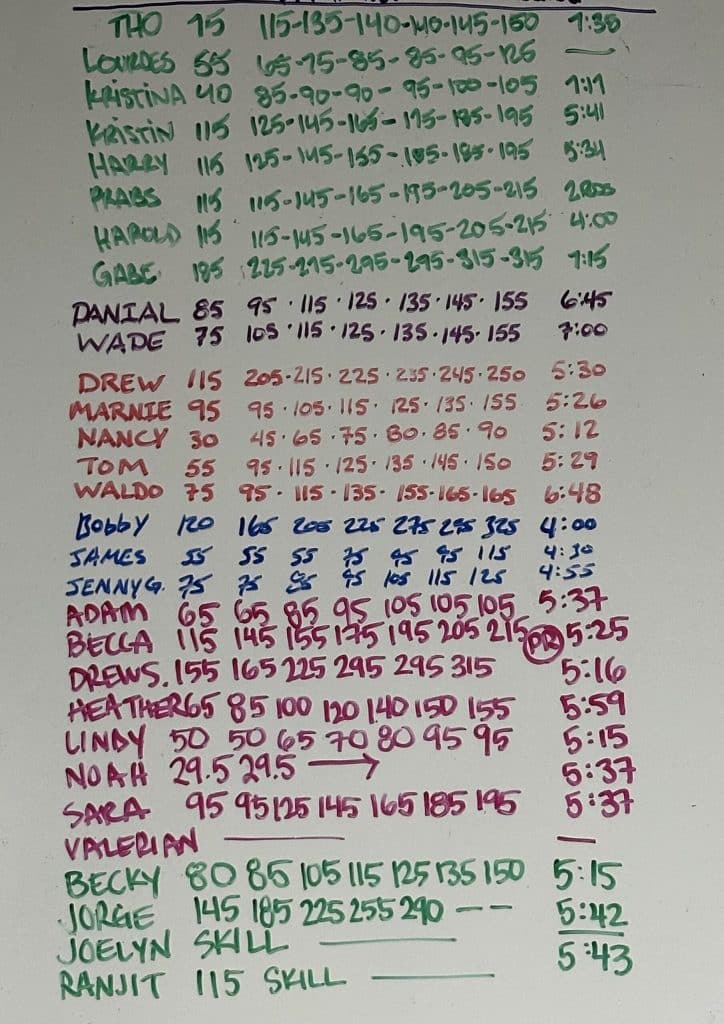 THO 75 115-135-140-140-145-150 7:38
LOURDES 55 65-75-85-85-95-125 —
KRISTINA 40 85-90-90-95-100-105 7:19
KRISTIN 115 125-145-165-175-185-195 5:41
HARRY 115 125-145-155-185-185-195 5:34
PRABS 115 115-145-165-195-205-215
HAROLD 115 115-145-165-195-205-215 4:00
GABE 185 225-275-295-295-315-315 7:15
DANIAL 85 95 · 115 · 125 · 135 · 145 · 155 6:45
WADE 75 105 · 115 · 125 · 135 · 145 · 155 7:00
DREW 115 205 · 215 · 225 · 235 · 245 · 250 5:30
MARNIE 95 95 · 105 · 115 · 125 · 135 · 155 5:26
NANCY 30 45 · 65 · 75 · 80 · 85 · 90 5:12
TOM 55 95 · 115 · 125 · 135 · 145 · 150 5:29
WALDO 75 95 · 115 · 135 · 155 · 165 · 165 6:48
BOBBY 120 165 205 225 275 295 325 4:00
JAMES 55 55 55 75 95 95 115 4:30
JENNY G. 75 75 95 105 115 125 4:55
ADAM 65 65 85 95 105 105 105 5:37
BECCA 115 145 155 175 195 205 215 PR 5:25
DREW S. 155 165 225 295 295 315 5:16
HEATHER 65 85 100 120 140 150 155 5:59
LINDY 50 50 65 70 80 95 95 5:15
NOAH 29.5 29.5 → 5:37
SARA 95 95 125 145 165 185 195 5:37
VALERIAN — —
BECKY 80 85 105 115 125 135 150 5:15
JORGE 145 185 225 255 290 – – 5:42
JOELYN SKILL — —
RANJIT 115 SKILL — 5:43